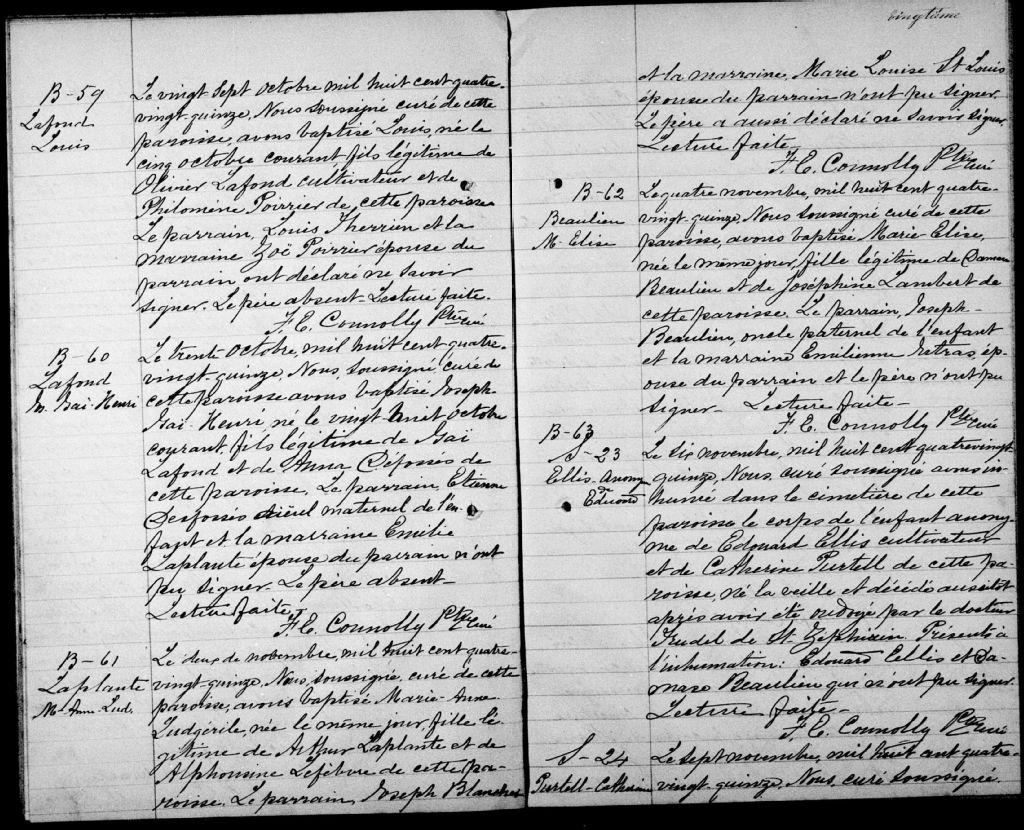 B-59
Lafond
Louis
Le vingt Sept octobre mil huit cent quatre-
vingt-quinze, Nous Soussigné curé de cette
paroisse, avons baptisé Louis, né le
cinq octobre courant, fils légitime de
Olivier Lafond cultivateur et de
Philomène Poirrier de cette paroisse
Le parrain, Louis Therrien et la
marraine Zoë Poirrier épouse du
parrain ont déclaré ne savoir
signer. Le père absent - Lecture faite.
F. E. Connolly Ptre Curé
B-60
Lafond
M. Isaï-Henri
Le trente octobre, mil huit cent quatre-
vingt-quinze, Nous, soussigné, curé de
cette paroisse avons baptisé Joseph
Isaï-Henri né le vingt-huit octobre
courant, fils légitime de Isaï
Lafond et de Anna Défossés de
cette paroisse. Le parrain, Etienne
Desfossés aïeul maternel de l'en-
fant et la marraine Emilie
Laplante épouse du parrain n'ont
pu signer. Le père absent -
Lecture faite.
F. E. Connolly Ptre Curé
B-61
Laplante
M-Anne-Lud.
Le deux de novembre, mil huit cent quatre-
vingt-quinze, Nous, soussigné, curé de cette
paroisse, avons baptisé Marie-Anne
Ludgérile, née le même jour, fille lé-
gitime de Arthur Laplante et de
Alphonsine Lefebvre de cette pa-
roisse. Le parrain, Joseph Blanchet
vingtième
et la marraine, Marie Louise St Louis
épouse du parrain n'ont pu signer
Le père a aussi déclaré ne savoir signer.
Lecture faite
F. E. Connolly Ptre Curé
B-62
Beaulieu
M-Elise
Le quatre novembre, mil huit cent quatre-
vingt-quinze, Nous soussigné curé de cette
paroisse, avons baptisé Marie-Elise,
née le même jour, fille légitime de Damase
Beaulieu et de Joséphine Lambert de
cette paroisse. Le parrain, Joseph
Beaulieu, oncle paternel de l'enfant
et la marraine Emilienne Setras, ép-
ouse du parrain et le père n'ont pu
signer - Lecture faite -
F. E. Connolly Ptre Curé
B-63
S-23
Ellis-Anonyme
Edward
Le six novembre, mil huit cent quatrevingt
quinze, Nous, curé soussigné avons in-
humé dans le cimetière de cette
paroisse le corps de l'enfant anony-
me de Edouard Ellis cultivateur
et de Catherine Purtell de cette pa-
roisse, né la veille et décédé aussitôt
après avoir été ondoyé par le docteur
Trudel de St Zéphirin. Présents à
l'inhumation: Edouard Ellis et Da-
mase Beaulieu qui n'ont pu signer.
Lecture faite -
F. E. Connolly Ptre Curé
S-24
Purtell-Catherine
Le sept novembre, mil huit cent quatre-
vingt-quinze, Nous, curé soussigné